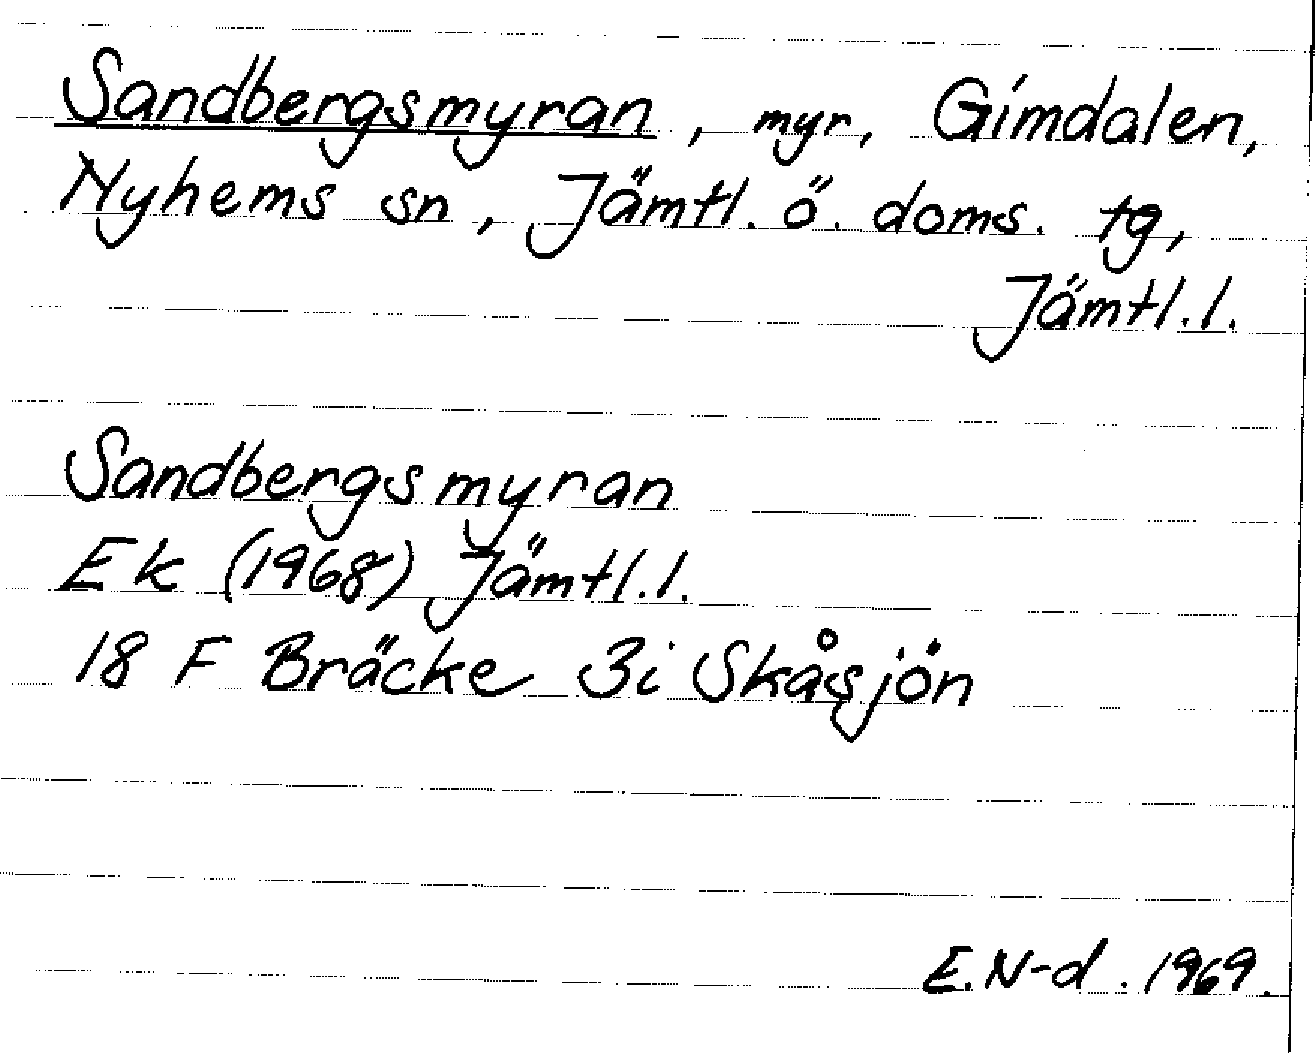 Sandbergsmyran, myr, Gimdalen,
Nyhems sn, Jämtl. ö. doms. tg,
Jämtl.l.
Sandbergsmyran
Ek (1968) Jämtl.l.
18 F Bräcke 3i Skåsjön
E.N-d. 1969.